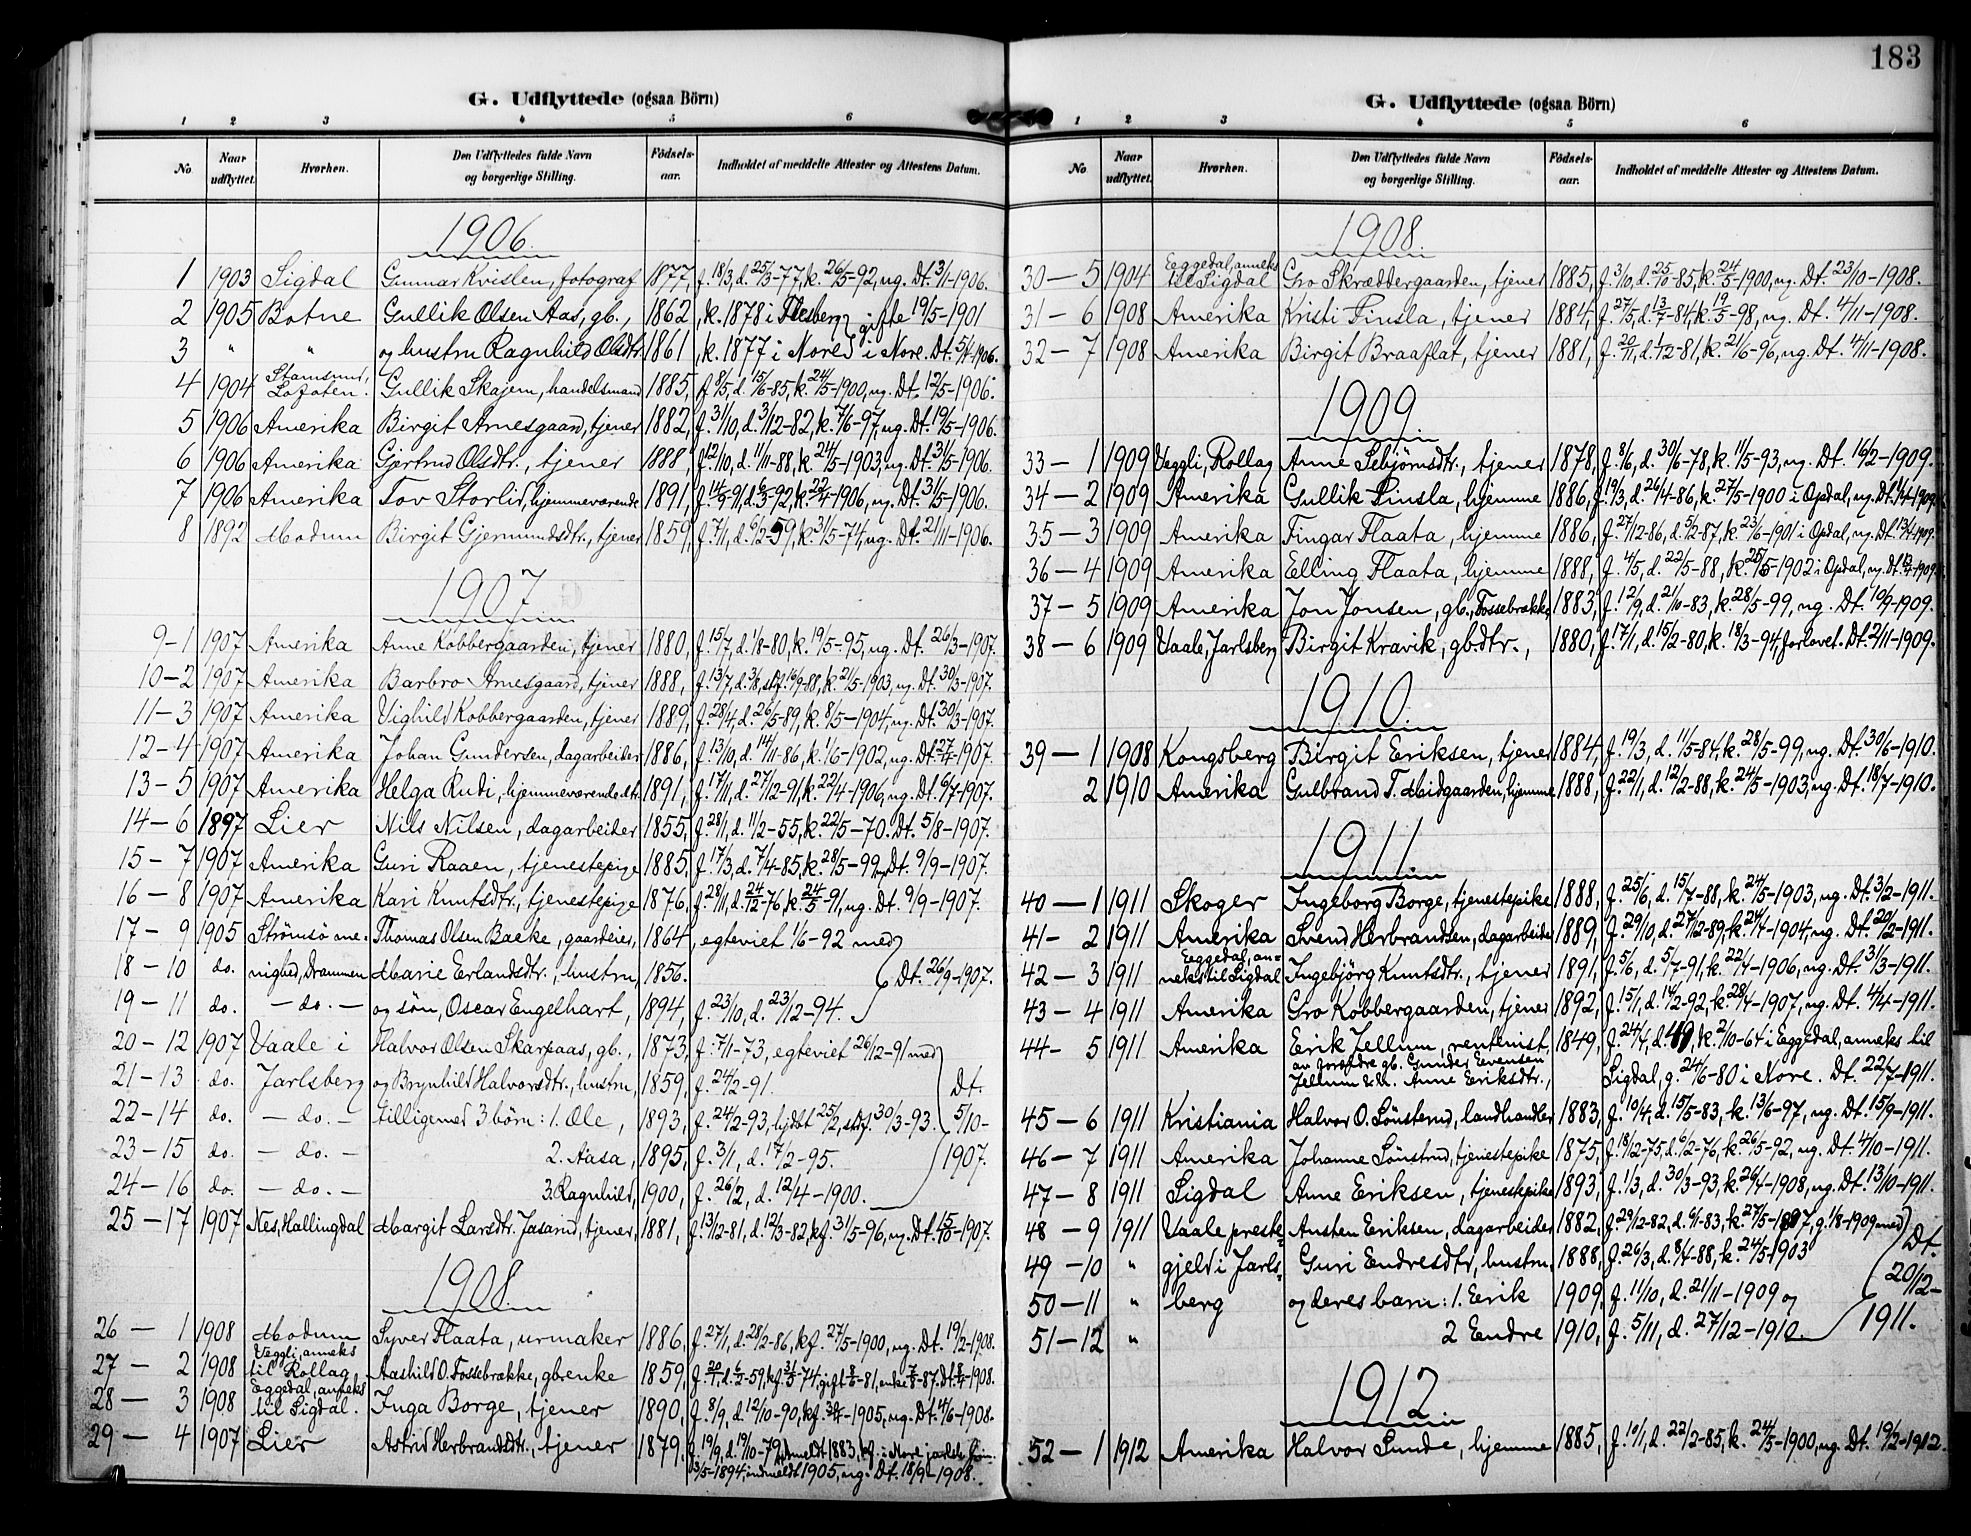 183
G. Udflyttede (ogsaa Börn)
1 2 3 4 5 6
No. Naar udflyttet. Hvorhen. Den Udflyttedes fulde Navn og borgerlige Stilling. Födselsaar. Indholdet af meddelte Attester og Attestens Datum.
1906.
1 1903 Sigdal Gunnar Kvislen, fotograf 1877, f. 18/3, d. 25/3-77, k. 26/5-92, ug. Dt. 3/1-1906.
2 1905 Botne Gullik Olsen Aas, gb., 1862, k. 1878 i Flesberg gifte 19/5-1901
3 " " og hustru Ragnhild Olsdtr. 1861, k. 1877 i Nore i Nore. Dt. 5/4-1906.
4 1904 Stamsund, Lofoten. Gullik Skajem, handelsmand 1885, f. 8/5, d. 15/6-85, k. 24/5-1900, ug. Dt. 12/5-1906.
5 1906 Amerika Birgit Arnesgaard, tjener 1882, f. 31/10, d. 3/12-82, k. 7/6-97, ug. Dt. 19/5-1906.
6 1906 Amerika Gjertrud Olsdtr., tjener 1888, f. 12/10, d. 11/11-88, k. 24/5-1903, ug. Dt. 31/5-1906.
7 1906 Amerika Tov Storlid, hjemmeværende 1891, f. 14/9-91, d. 6/3-92, k. 22/4-1906, ug. Dt. 31/5-1906.
8 1892 Modum Birgit Gjermundsdtr., tjener 1859, f. 7/1, d. 6/2-59, k. 31/5-74, ug. Dt. 21/11-1906.
1907
9-1 1907 Amerika Anne Kobbergaarden, tjener 1880, f. 15/7, d. 1/8-80, k. 19/5-95, ug. Dt. 26/3-1907.
10-2 1907 Amerika Barbro Arnesgaard, tjener 1888, f. 13/7, d. 3/8, stf. 16/9-88, k. 21/5-1903, ug. Dt. 30/3-1907.
11-3 1907 Amerika Vighild Kobbergaarden, tjener 1889, f. 28/4, d. 26/5-89, k. 8/5-1904, ug. Dt. 30/3-1907.
12-4 1907 Amerika Johan Gundersen, dagarbeider 1886, f. 13/10, d. 14/11-86, k. 1/6-1902, ug. Dt. 27/4-1907.
13-5 1907 Amerika Helga Rudi, hjemmeværende dtr. 1891, f. 17/11, d. 27/12-91, k. 22/4-1906, ug. Dt. 6/7-1907.
14-6 1897 Lier Nils Nilsen, dagarbeider 1855, f. 28/1, d. 11/2-55, k. 22/5-70. Dt. 5/8-1907.
15-7 1907 Amerika Guri Raaen, tjenestepige 1885, f. 17/3, d. 7/4-85, k. 28/5-99, ug. Dt. 9/9-1907.
16-8 1907 Amerika Kari Knutsdtr., tjenestepige 1876, f. 28/11, d. 24/12-76, k. 24/5-91, ug. Dt. 9/9-1907.
17-9 1905 Strømsø me- Thomas Olsen Bakke, gaardeier, 1864, egteviet 1/6-92 med
18-10 do. nighed, Drammen Marie Erlandsdtr., hustru, 1856. Dt. 26/9-1907.
19-11 do. -do.- og søn, Oscar Engelhart, 1894, f. 23/10, d. 23/12-94.
20-12 1907 Vaale i Halvor Olsen Skarpaas, gb., 1873, f. 7/1-73, egteviet 26/12-91 med
21-13 do. Jarlsberg og Brynhild Halvorsdtr., hustru, 1859, f. 24/2-91. Dt.
22-14 do. -do.- tilligemed 3 børn: 1. Ole, 1893, f. 24/2-93, hjdbt 25/2, stf. 30/3-93. 5/10-
23-15 do. -do.- 2. Aasa, 1895, f. 3/1, d. 17/2-95. 1907.
24-16 do. -do.- 3. Ragnhild, 1900, f. 26/2, d. 12/4-1900.
25-17 1907 Nes, Hallingdal Margit Larsdtr. Jasand, tjener, 1881, f. 13/12-81, d. 12/3-82, kf. 31/5-96, ug. Dt. 15/10-1907.
1908
26-1 1908 Modum Syver Flaata, urmaker 1886, f. 27/1, d. 28/2-86, kf. 27/5-1900, ug. Dt. 19/2-1908.
27-2 1908 Veggli, anneks til Rollag Aashild O. Fossebrække, gb.enke 1859, f. 20/1, d. 6/2-59, kf. 31/5-74, gift 8/6-81, enke 7/8-87. Dt. 8/4-1908.
28-3 1908 Eggedal, anneks til Sigdal. Inga Borge, tjener 1890, f. 8/9, d. 12/10-90, kf. 30/4-1905, ug. Dt. 4/6-1908.
29-4 1907 Lier Astrid Herbrandsdtr., tjener 1879, f. 19/9, d. 19/10-79, udmeldt 1883, kf. i Nore
13/5-1894, indmeldt 1905, ug. Dt. 18/9-1908.
G. Udflyttede (ogsaa Börn)
1 2 3 4 5 6
No. Naar udflyttet. Hvorhen. Den Udflyttedes fulde Navn og borgerlige Stilling. Födselsaar. Indholdet af meddelte Attester og Attestens Datum.
1908.
30-5 1904 Eggedal, anneks til Sigdal Gro Skræddergaarden, tjener 1885, f. 3/10, d. 25/10-85, k. 24/5-1900, ug. Dt. 23/10-1908.
31-6 1908 Amerika Kristi Finsla, tjener 1884, f. 27/5, d. 13/7-84, k. 19/5-98, ug. Dt. 4/11-1908.
32-7 1908 Amerika Birgit Braaflat, tjener 1881, f. 20/11, d. 1/12-81, k. 21/6-96, ug. Dt. 4/11-1908.
1909.
33-1 1909 Veggli, Rollag Anne Sebjørnsdtr., tjener 1878, f. 8/6, d. 30/6-78, k. 11/5-93, ug. Dt. 16/2-1909.
34-2 1909 Amerika Gullik Finsla, hjemme 1886, f. 19/3, d. 26/4-86, k. 27/5-1900 i Opdal, ug. Dt. 14/4-1909.
35-3 1909 Amerika Fingar Flaata, hjemme 1886, f. 27/12-86, d. 5/2-87, k. 23/6-1901 i Opdal, ug. Dt. 13/4-1909.
36-4 1909 Amerika Elling Flaata, hjemme 1888, f. 4/5, d. 22/5-88, k. 25/5-1902 i Opdal, ug. Dt. 13/4-1909.
37-5 1909 Amerika Jon Jonsen, gb., Fossebrække, 1883, f. 12/9, d. 21/10-83, k. 28/5-99, ug. Dt. 10/9-1909.
38-6 1909 Vaale, Jarlsberg Birgit Kravik, gb.dtr., 1880, f. 17/1, d. 15/2-80, k. 18/3-94, forlovet. Dt. 2/11-1909.
1910.
39-1 1908 Kongsberg Birgit Eriksen, tjener 1884, f. 19/3, d. 11/5-84, k. 28/5-99, ug. Dt. 30/6-1910.
2 1910 Amerika Gulbrand T. Midgaarden, hjemme 1888, f. 22/1, d. 12/2-88, k. 24/5-1903, ug. Dt. 18/7-1910.
1911.
40-1 1911 Skoger Ingeborg Borge, tjenestepike 1888, f. 25/6, d. 15/7-88, k. 24/5-1903, ug. Dt. 3/2-1911.
41-2 1911 Amerika Svend Herbrandsen, dagarbeider 1889, f. 29/10, d. 27/12-89, k. 24/4-1904, ug. Dt. 20/2-1911.
42-3 1911 Eggedal, anneks til Sigdal Ingebjörg Knutsdtr., tjener 1891, f. 5/6, d. 5/7-91, k. 22/4-1906, ug. Dt. 31/3-1911.
43-4 1911 Amerika Gro Kobbergaarden, tjener 1892, f. 15/1, d. 14/2-92, k. 28/4-1907, ug. Dt. 4/4-1911.
44-5 1911 Amerika Erik Jellum, rentenist, 1849, f. 24/4, d. 49, k. 2/10-64 i Eggedal, anneks til
av forældre gb. Gunder Evensen
Jellum & h. Anne Eriksdtr., Sigdal, g. 24/6-80 i Nore. Dt. 22/7-1911.
45-6 1911 Kristiania Halvor O. Lønsterud, landhandler 1883, f. 10/4, d. 15/5-83, k. 13/6-97, ug. Dt. 15/9-1911.
46-7 1911 Amerika Johanne Sønstrud, tjenestepike 1875, f. 18/12-75, d. 6/2-76, k. 26/5-92, ug. Dt. 4/10-1911.
47-8 1911 Sigdal Anne Eriksen, tjenestepike 1893, f. 1/3, d. 30/3-93, k. 26/4-1908, ug. Dt. 13/10-1911.
48-9 1911 Vaale preste- Austen Eriksen, dagarbeider 1882, f. 29/12-82, d. 6/1-83, k. 27/5-1897, g. 1/8-1909 med Dt.
49-10 " gjeld i Jarls- Guri Endresdtr, hustru, 1888, f. 26/3, d. 8/4-88, k. 24/5-1903 20/12-
50-11 " berg og deres barn: 1. Eerik 1909, f. 11/10, d. 21/11-1909 og 1911.
51-12 " 2 Endre 1910, f. 5/11, d. 27/12-1910.
1912
52-1 1912 Amerika Halvor Lunde, hjemme 1885, f. 10/1, d. 22/2-85, k. 24/5-1900, ug. Dt. 19/2-1912.